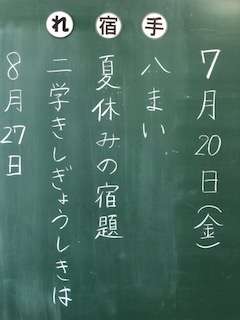 7月20日(金)
手 八まい
宿 夏休みの宿題
れ 二学きしぎょうしきは
8月27日